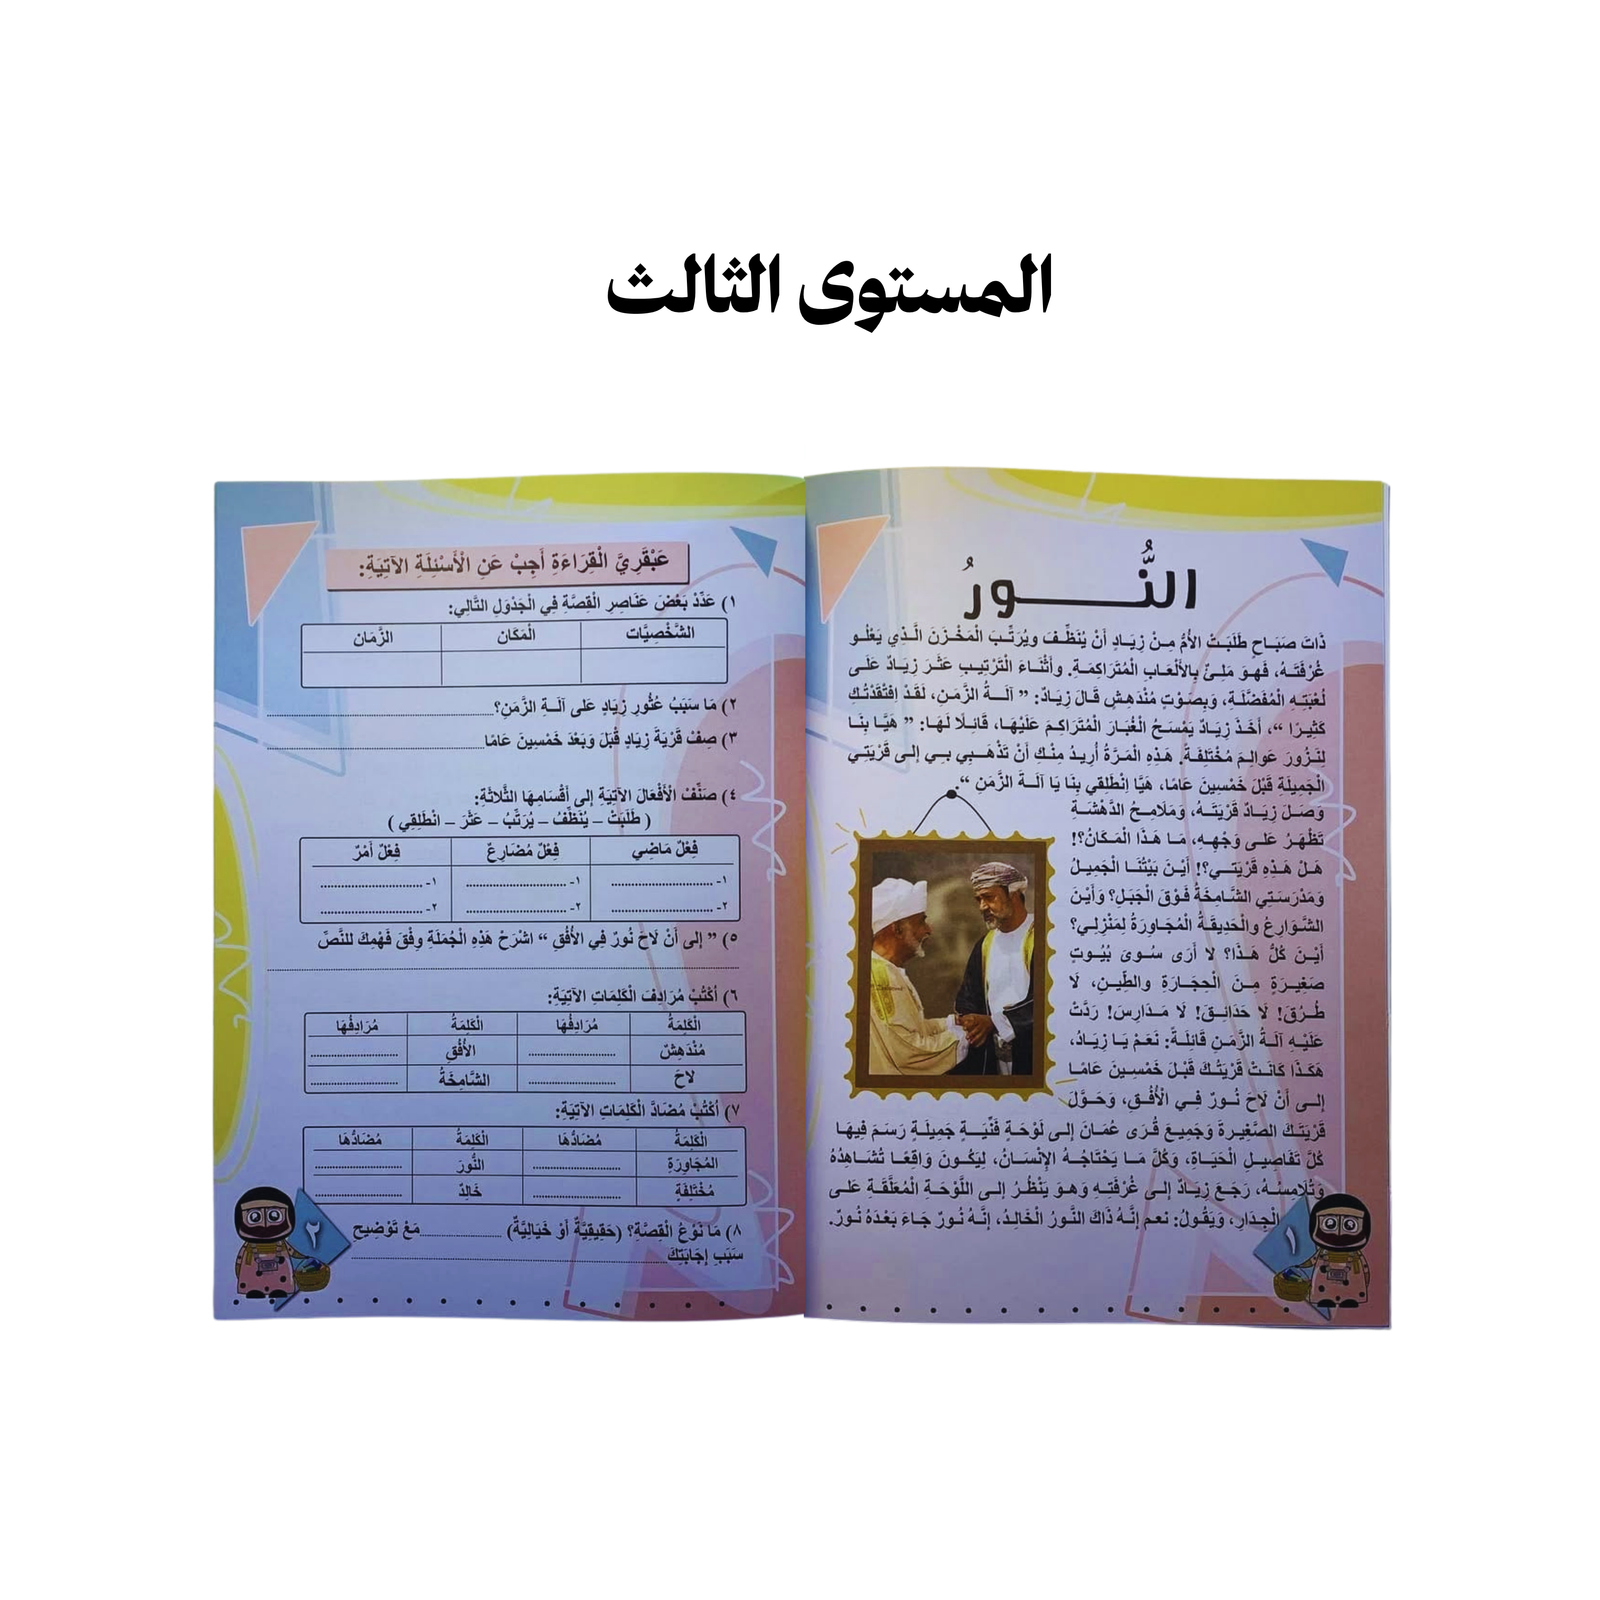 المستوى الثالث
النُّـــورُ
ذَاتَ صَبَاحٍ طَلَبَتْ الأُمُّ مِنْ زِيَادٍ أَنْ يُنَظِّفَ ويُرَتِّبَ الْمَخْزَنَ الَّذِي يَعْلُو
غُرْفَتَهُ، فَهُوَ مَلِئٌ بِالأَلْعَابِ الْمُتَرَاكِمَةِ. وأَثْنَاءَ التَرْتِيبِ عَثَرَ زِيَادٌ عَلَى
لُعْبَتِهِ الْمُفَضَّلَةِ، وَبِصَوْتٍ مُنْدَهِشٍ قَالَ زِيَادٌ: ” آلَةُ الزَّمَنِ، لَقَدْ اِفْتَقَدْتُكِ
كَثِيرًا “، أَخَذَ زِيَادٌ يَمْسَحُ الْغُبَارَ الْمُتَرَاكِمَ عَلَيْهَا، قَائِلًا لَهَا: ” هَيَّا بِنَا
لِنَزُورَ عَوالِمَ مُخْتَلِفَة. هَذِهِ الْمَرَّةُ أُرِيدُ مِنْكِ أَنْ تَذْهَبِي بِي إِلَى قَرْيَتِي
الْجَمِيلَةِ قَبْلَ خَمْسِينَ عَامًا، هَيَّا اِنْطَلِقِي بِنَا يَا آلَةَ الزَّمَنِ “.
وَصَلَ زِيَادٌ قَرْيَتَهُ، وَمَلَامِحُ الدَّهْشَةِ
تَظْهَرُ عَلى وَجْهِهِ، مَا هَذَا الْمَكَانُ؟!
هَلْ هَذِهِ قَرْيَتِي؟! أَيْنَ بَيْتُنَا الْجَمِيلُ
وَمَدْرَسَتِي الشَّامِخَةُ فَوْقَ الْجَبَلِ؟ وَأَيْنَ
الشَّوَارِعُ والْحَدِيقَةُ الْمُجَاوِرَةُ لِمَنْزِلِي؟
أَيْنَ كُلُّ هَذَا؟ لا أَرَى سُوَىَ بُيُوتٍ
صَغِيرَةٍ مِنَ الْحِجَارَةِ والطِّينِ، لَا
طُرُقَ! لَا حَدَائِقَ! لَا مَدَارِسَ! رَدَّتْ
عَلَيْهِ آلَةُ الزَّمَنِ قَائِلَةً: نَعَمْ يَا زِيَادُ،
هَكَذَا كَانَتْ قَرْيَتُكَ قَبْلَ خَمْسِينَ عَامًا
إِلى أَنْ لَاحَ نُورٌ فِي الْأُفُقِ، وَحَوَّلَ
قَرْيَتَكَ الصَّغِيرةَ وَجَمِيعَ قُرَى عُمَانَ إِلى لَوْحَةٍ فَنِّيَةٍ جَمِيلَةٍ رَسَمَ فِيهَا
كُلَّ تَفَاصِيلِ الْحَيَاةِ، وَكُلَّ مَا يَحْتَاجُهُ الإِنْسَانُ، لِيَكُونَ وَاقِعًا تُشَاهِدُهُ
وَتُلَامِسهُ، رَجَعَ زِيَادٌ إِلى غُرْفَتِهِ وَهوَ يَنْظُرُ إِلى اللَّوْحَةِ الْمُعَلَّقَةِ عَلى
الْجِدَارِ، وَيَقُولُ: نعم إِنَّهُ ذَاكَ النَّورُ الْخَالِدُ، إِنَّهُ نُورٌ جَاءَ بَعْدَهُ نُورٌ.
١
عَبْقَرِيَّ الْقِرَاءَةِ أَجِبْ عَنِ الْأَسْئِلَةِ الآتِيَةِ:
١) عَدِّدْ بَعْضَ عَنَاصِرِ الْقِصَّةِ فِي الْجَدْوَلِ التَّالِي:
الشَّخْصِيَّات الْمَكَان الزَّمَان
٢) مَا سَبَبُ عُثُورِ زِيَادٍ عَلى آلَةِ الزَّمَنِ؟
٣) صِفْ قَرْيَةَ زِيَادٍ قَبْلَ وَبَعْدَ خَمْسِينَ عَامًا
٤) صَنِّفْ الْأَفْعَالَ الآتِيَةَ إِلى أَقْسَامِهَا الثَّلَاثَةِ:
( طَلَبَتْ – يُنَظِّفُ – يُرَتِّبُ – عَثَرَ – انْطَلِقِي )
فِعْلٌ مَاضِي فِعْلٌ مُضَارِعٌ فِعْلُ أَمْرٌ
١- ١- ١-
٢- ٢- ٢-
٥) ” إِلى أَنْ لَاحَ نُورٌ فِي الأُفُقِ “ اشْرَحْ هَذِهِ الْجُمْلَةِ وِفْقَ فَهْمِكَ للنَّصِّ
٦) اُكْتُبْ مُرَادِفَ الْكَلِمَاتِ الآتِيَةِ:
الْكَلِمَةُ مُرَادِفُهَا الْكَلِمَةُ مُرَادِفُهَا
مُنْدَهِشٌ الأُفُقِ
لاحَ الشَّامِخَةُ
٧) اُكْتُبْ مُضَادَّ الْكَلِمَاتِ الآتِيَةِ:
الْكَلِمَةُ مُضَادُّهَا الْكَلِمَةُ مُضَادُّهَا
الْمُجَاوِرَةِ النُّورَ
مُخْتَلِفَةٍ خَالِدٌ
٨) مَا نَوْعُ الْقِصَّةِ؟ (حَقِيقِيَّةٌ أَوْ خَيَالِيَّةٌ) مَعْ تَوْضِيحِ
سَبَبِ إِجَابَتِكَ
٢